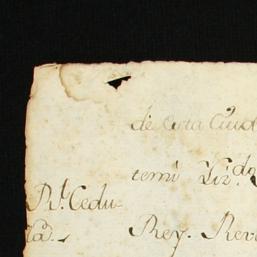 de esta Ciud
temi Liz.do
Rl. Cedu-
la.
Rey. Rev